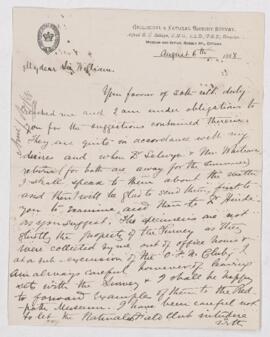 GEOLOGICAL & NATURAL HISTORY SURVEY,
Alfred R. C. Selwyn, C.M.G., LL.D., F.R.S., Director
MUSEUM AND OFFICE, SUSSEX ST., OTTAWA
August 6th 188
My dear Sir William.
Your favour of 30th ult. duly
reached me and I am under obligations to
you for the suggestions contained therein.
They are quite in accordance with my
desires and when Dr Selwyn & Mr Whiteaves
return (for both are away for the summer)
I shall speak to them about the matter
and then will be glad to send them, first to
you to examine and then to Dr Hinde.
The specimens are not
strictly the property of the Survey as they
were collected by me out of office hours &
at a sub-excursion of the O.F.N. Club.
I am always careful however of
with the Survey & I shall be happy
to forward examples of them to the Red-
path Museum. I have been careful not
to let the Naturalists Field Club interfere
with